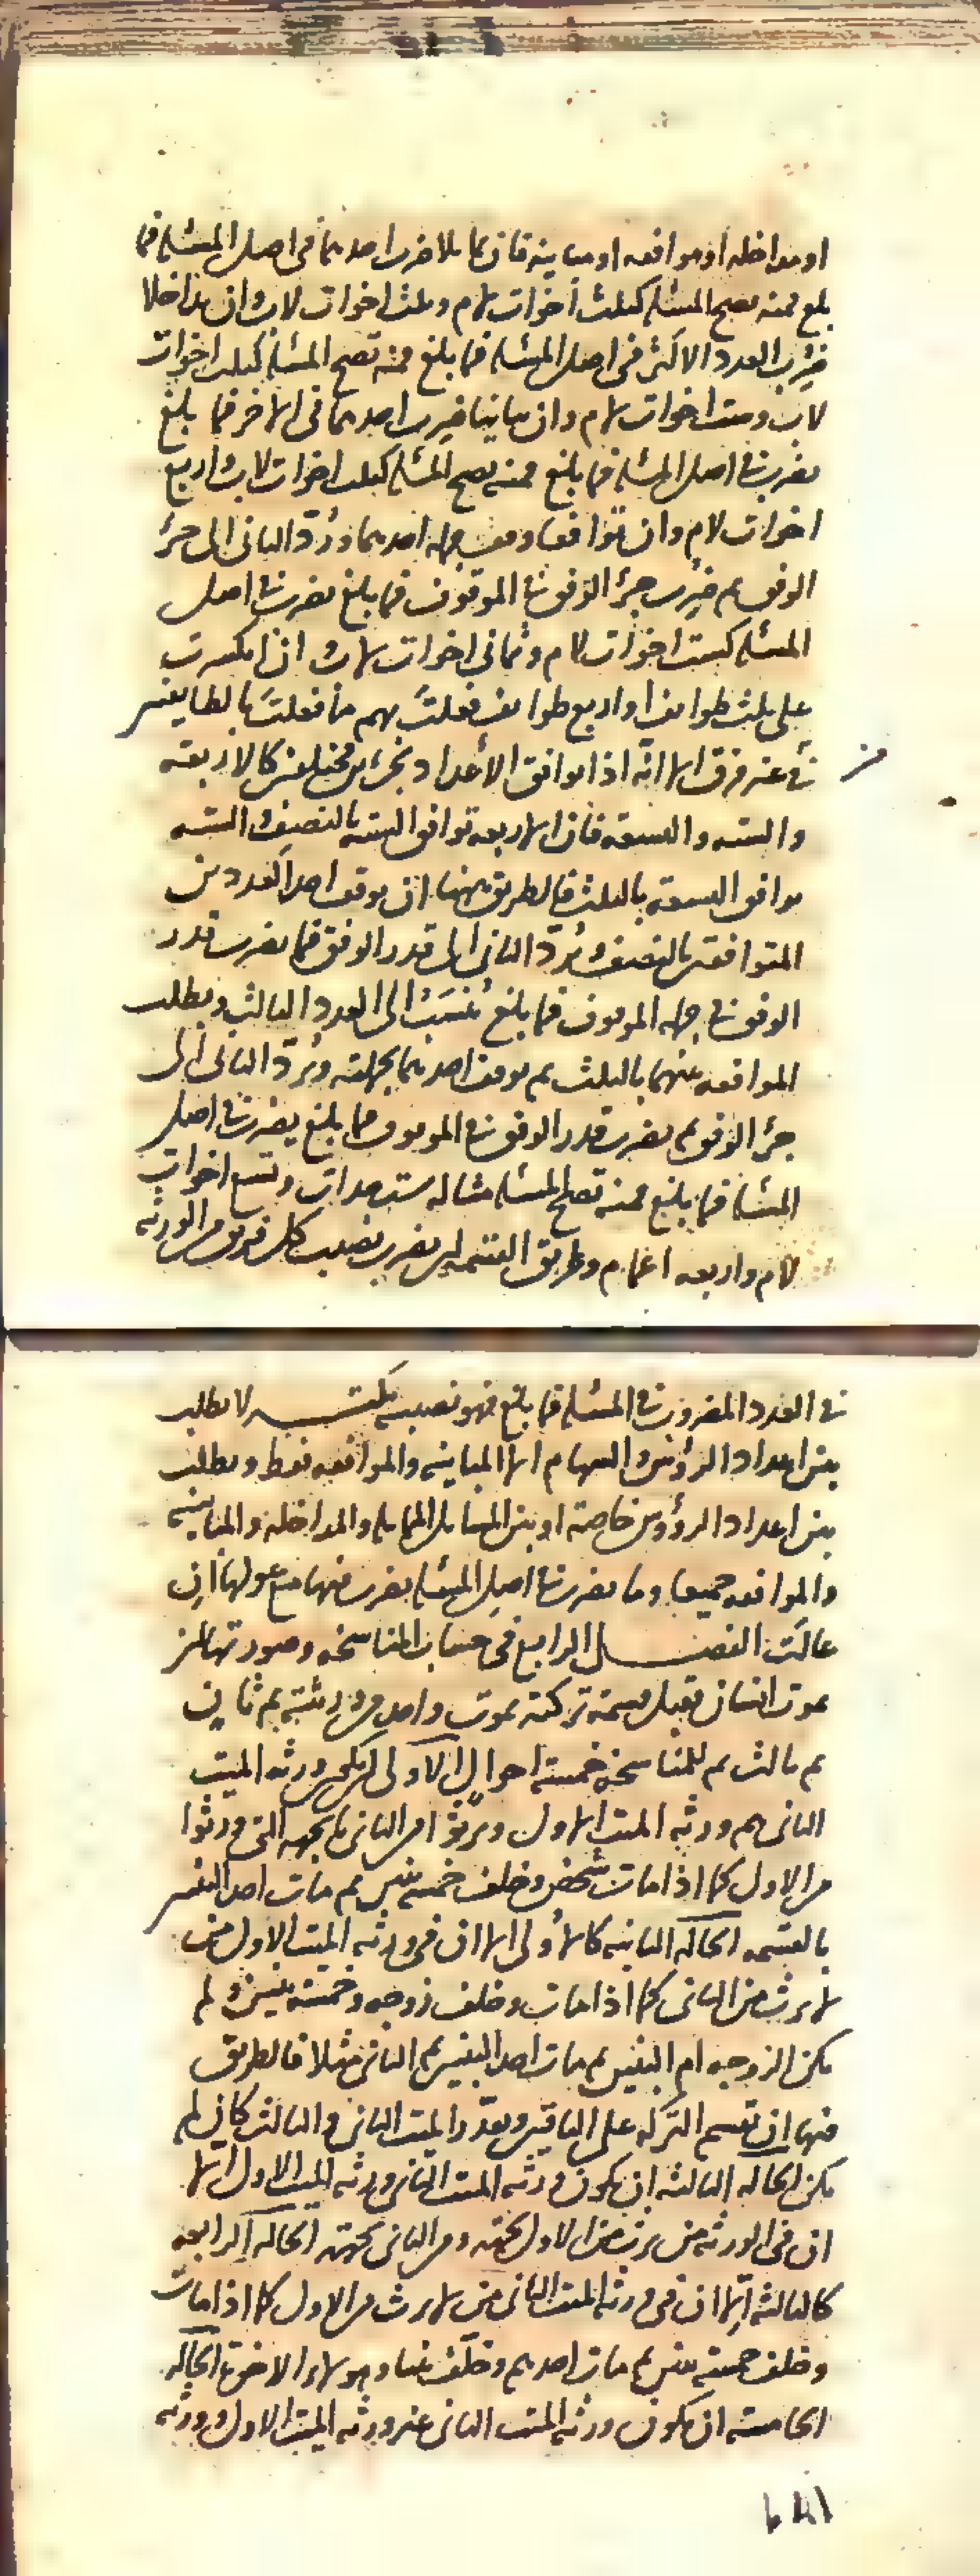 او مداخله او موافقه او مباينه فان تماثلا ضرب احدهما فى اصل المسئله فما
بلغ فمنه تصح المسئله كثلث اخوات لام وثلث اخوات لاب وان تداخلا
ضرب العدد الاكثر فى اصل المسئله فما بلغ فمنه تصح المسئله كثلث اخوات
لاب وست اخوات لام وان تباينا ضرب احدهما فى الاخر فما بلغ
يضرب فى اصل المسئله فما بلغ فمنه تصح المسئله كثلث اخوات لاب واربع
اخوات لام وان توافقا وقف جمله احدهما ورُدّ الثانى الى جزء
الوفق ثم ضرب جزء الوفق فى الموقوف فما بلغ يضرب فى اصل
المسئله كست اخوات لام وثمانى اخوات لاب وان انكسرت
على ثلث طوايف او اربع طوايف فعلتَ بهم ما فعلتَ بالطايفتين
من غير فرق الا انّه اذا توافق الأعداد بجزئين مختلفين كالاربعة
والستة والتسعة فان الاربعه توافق الستة بالنصف والستة
توافق التسعة بالثلث فالطريق ههنا ان يوقف احد العددين
المتوافقين بالنصف ويُردّ الثانى الى قدر الوفق فما يضرب قدر
الوفق فى جمله الموقوف فما بلغ نُسَبْ الى العدد الثالث ويطلب
الموافقه بينهما بالثلث ثم يوقف احدهما بجملته ويُردّ الثانى الى
جزء الوفق ثم يضرب قدر الوفق فى الموقوف فما بلغ يضرب فى اصل
المسئله فما بلغ فمنه تصح المسئله مثاله ست جدات وتسع اخوات
لام واربعه اعمام وطريق القسمه ان يضرب نصيب كل فريق من الورثه
فى العدد المضروب فى المسئله فما بلغ فهو نصيبه نكتــــه لا يطلب
بين اعداد الرؤس والسهام الا المباينه والموافقه فقط ويطلب
بين اعداد الرؤوس خاصة او بين المسايل المماثله والمداخله والمباينه
والموافقه جميعا وما يضرب فى اصل المسئله يضرب فيها مع عولها ان
عالَت الفصــــل الرابع فى حساب المناسخه وصورتها ان
يموت انسان فقبل قسمة تركته يموت واحد من ورثته ثم ثانٍ
ثم ثالث ثم للمناسخه خمسة احوال الاولى ان يكون ورثه الميت
الثانى هم ورثه الميت الاول ويرثوا من الثانى بالجهه التى ورثوا
من الاول كما اذا مات شخص وخلف خمسه بنين ثم مات احد البنين
بالقسمه الحاله الثانيه كالأولى الا ان فى ورثه الميت الاول من
لا يرث من الثانى كما اذا مات وخلف زوجه وخمسة بنين ولم
تكن الزوجه ام البنين ثم مات احد البنين ثم الثانى مثلا فالطريق
فيها ان تقسم التركه على الباقين ويقدّر الميت الثانى والثالث كان لم
يكن الحاله الثالثه ان يكون ورثه الميت الثانى ورثه الميت الاول الا
ان فى الورثه من يرث من الاول بجهته ومن الثانى بجهته الحاله الرابعه
كالثالثه الّا ان فى ورثه الميت الثانى من لا يرث من الاول كما اذا مات
وخلف خمسة بنين ثم مات احدهم وخلّف بنتا وهولاء الاخوة الحاله
الخامسة ان يكون ورثه الميت الثانى غير ورثه الميت الاول وورثه